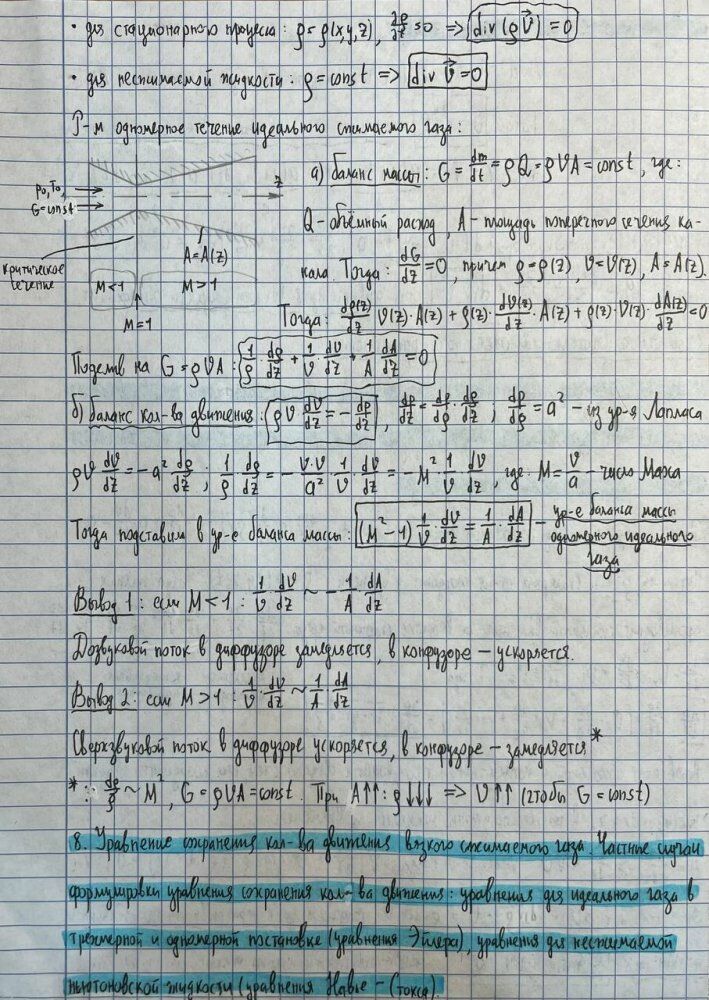 • для стационарного процесса: ρ = ρ(x,y,z), ∂ρ/∂t = 0 => div(ρV⃗) = 0
• для несжимаемой жидкости: ρ = const => div V⃗ = 0
Р-м одномерное течение идеального сжимаемого газа:
p₀, T₀,
G = const
z
A = A(z)
критическое
сечение
M<1
M>1
M=1
а) баланс массы: G = dm/dt = ρQ = ρVA = const, где:
Q - объёмный расход, A - площадь поперечного сечения ка-
нала. Тогда: dG/dz = 0, причем ρ = ρ(z), V = V(z), A = A(z).
Тогда: dρ(z)/dz V(z)·A(z) + ρ(z)·dV(z)/dz·A(z) + ρ(z)·V(z)·dA(z)/dz = 0
Поделив на G = ρVA: 1/ρ·dρ/dz + 1/V·dV/dz + 1/A·dA/dz = 0
б) баланс кол-ва движения: ρV dV/dz = - dp/dz, dp/dz = dp/dρ·dρ/dz; dp/dρ = a² - из ур-я Лапласа
ρV dV/dz = -a² dρ/dz; 1/ρ·dρ/dz = - V·V/a²·1/V·dV/dz = -M² 1/V dV/dz, где M = V/a - число Маха
Тогда подставим в ур-е баланса массы: (M²-1) 1/V·dV/dz = 1/A·dA/dz - ур-е баланса массы
одномерного идеального
газа
Вывод 1: если M<1: 1/V·dV/dz ~ - 1/A·dA/dz
Дозвуковой поток в диффузоре замедляется, в конфузоре - ускоряется.
Вывод 2: если M>1: 1/V·dV/dz ~ 1/A·dA/dz
Сверхзвуковой поток в диффузоре ускоряется, в конфузоре - замедляется*
* : dρ/ρ ~ M², G = ρVA = const. При A↑↑: ρ↓↓↓ => V↑↑ (чтобы G = const)
8. Уравнение сохранения кол-ва движения вязкого сжимаемого газа. Частные случаи
формулировки уравнения сохранения кол-ва движения: уравнения для идеального газа в
трехмерной и одномерной постановке (уравнения Эйлера), уравнения для несжимаемой
ньютоновской жидкости (уравнения Навье - Стокса).